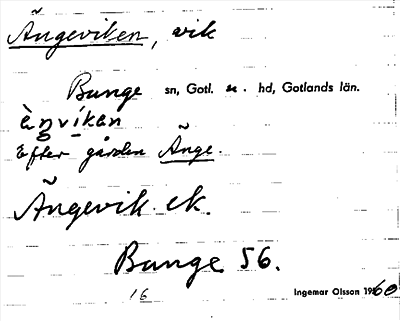 Ängeviken, vik
Bunge sn, Gotl. n. hd, Gotlands län.
èŋvíkan
Efter gården Änge.
Ängevik ek.
Bunge 56.
16 Ingemar Olsson 1960